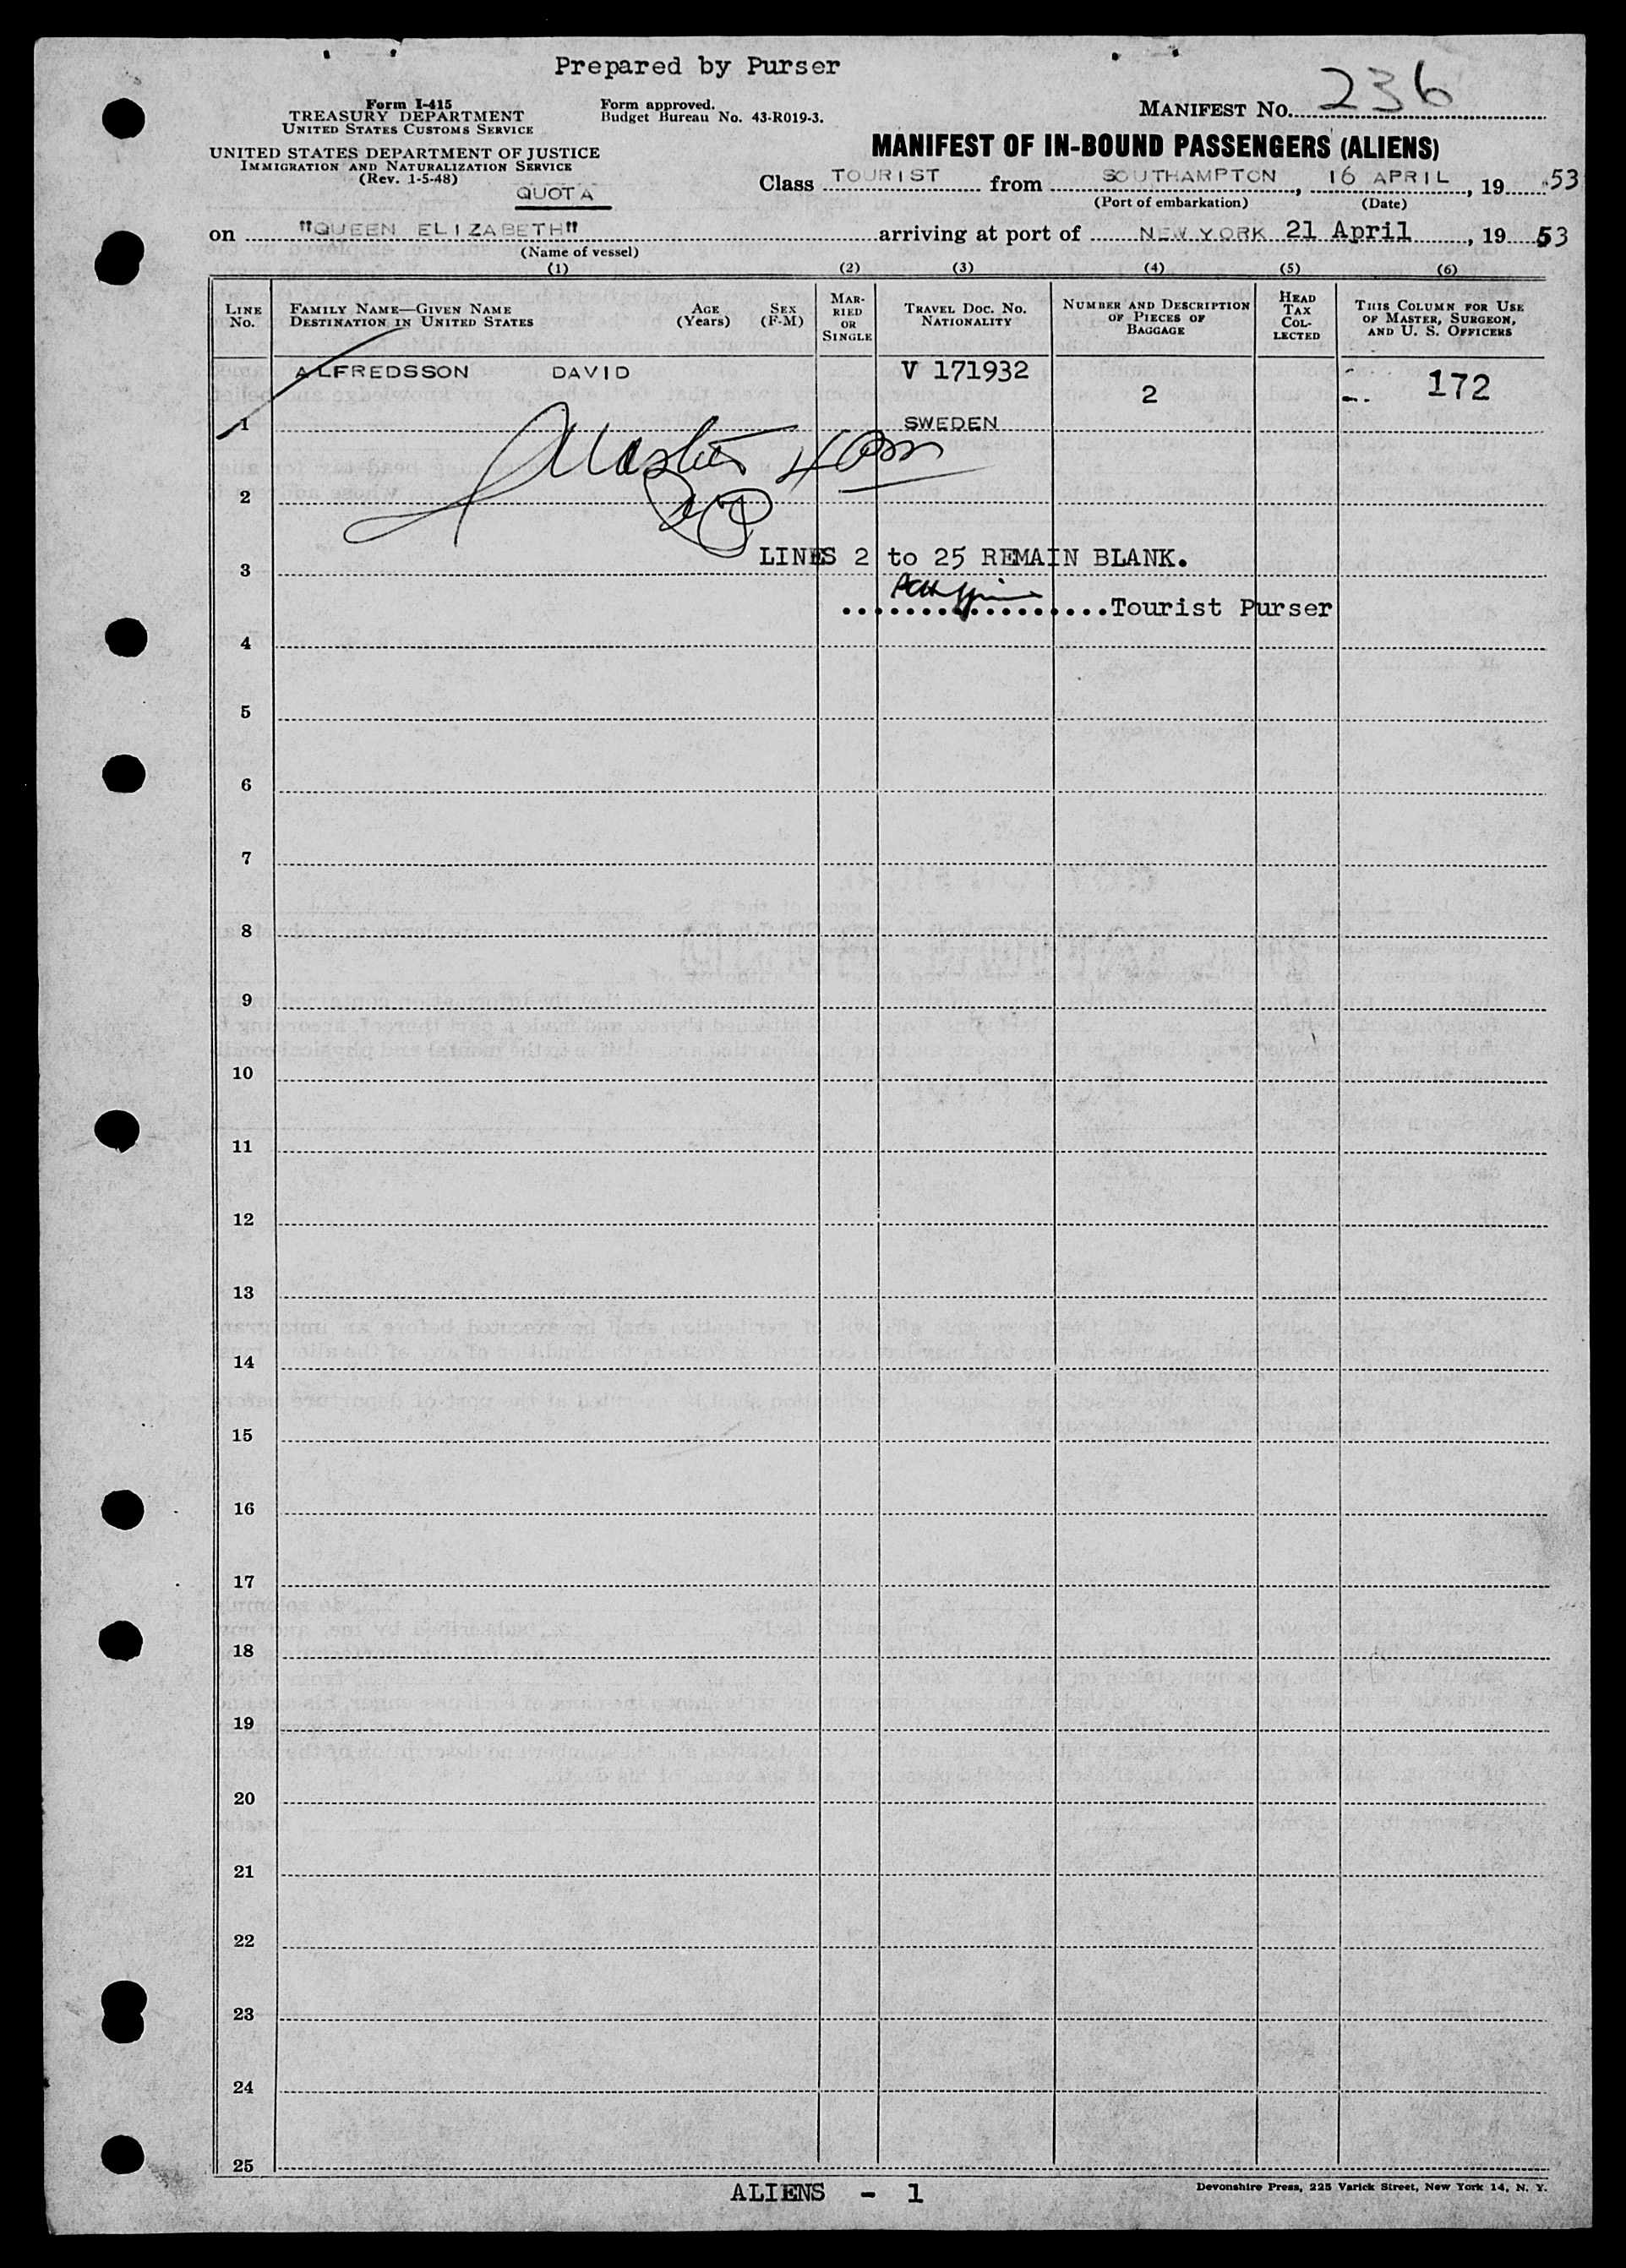 Prepared by Purser
Form I-415
TREASURY DEPARTMENT
UNITED STATES CUSTOMS SERVICE
UNITED STATES DEPARTMENT OF JUSTICE
IMMIGRATION AND NATURALIZATION SERVICE
(Rev. 1-5-48)
QUOTA
Form approved.
Budget Bureau No. 43-R019-3.
MANIFEST No. 236
MANIFEST OF IN-BOUND PASSENGERS (ALIENS)
Class TOURIST from SOUTHAMPTON, 16 APRIL, 19 53
(Port of embarkation) (Date)
on "QUEEN ELIZABETH" arriving at port of NEW YORK 21 April, 19 53
(Name of vessel)
(1) (2) (3) (4) (5) (6)
LINE No.
FAMILY NAME—GIVEN NAME
DESTINATION IN UNITED STATES
AGE (Years)
SEX (F-M)
MARRIED OR SINGLE
TRAVEL DOC. No.
NATIONALITY
NUMBER AND DESCRIPTION OF PIECES OF BAGGAGE
HEAD TAX COLLECTED
THIS COLUMN FOR USE OF MASTER, SURGEON, AND U. S. OFFICERS
ALFREDSSON DAVID V 171932 2 172
1 SWEDEN
2
LINES 2 to 25 REMAIN BLANK.
3
Tourist Purser
4
5
6
7
8
9
10
11
12
13
14
15
16
17
18
19
20
21
22
23
24
25
ALIENS - 1
Devonshire Press, 225 Varick Street, New York 14, N. Y.